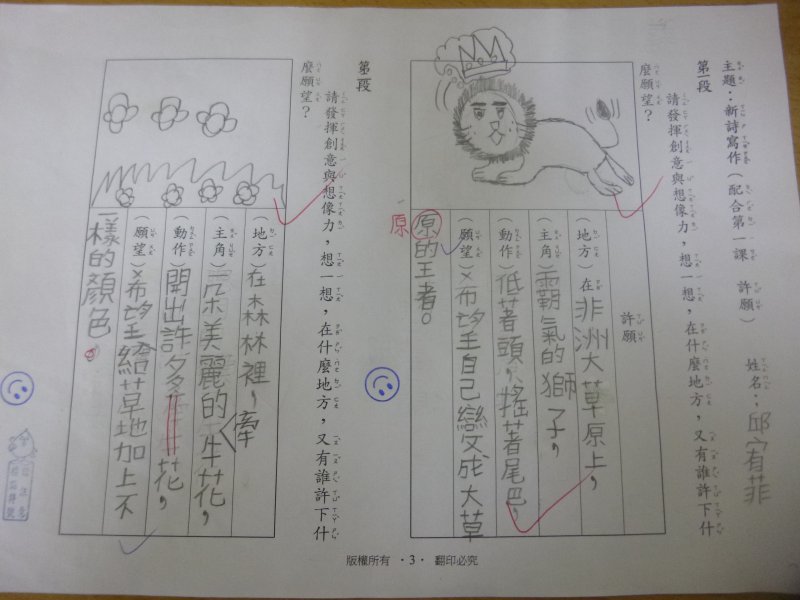 主題：新詩寫作（配合第一課 許願） 姓名：邱宥菲
第一段
請發揮創意與想像力，想一想，在什麼地方，又有誰許下什
麼願望？
許願
（地方）在非洲大草原上，
（主角）霸氣的獅子，
（動作）低著頭，搖著尾巴，
（願望）希望自己變成大草
原的王者。
原
第二段
請發揮創意與想像力，想一想，在什麼地方，又有誰許下什
麼願望？
（地方）在森林裡，
（主角）一朵美麗的牛花，
牽
（動作）開出許多花，
（願望）希望給草地加上不
一樣的顏色。
版權所有 ‧3‧ 翻印必究